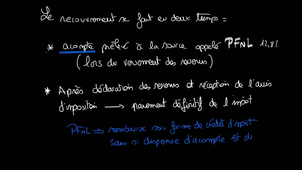 Le recouvrement se fait en deux temps :
* acompte prélevé à la source appelé PFNL 12,8%
( lors du versement des revenus )
* Après déclaration des revenus et réception de l'avis
d'imposition → paiement définitif de l'impôt
PFNL ⇒ remboursé sous forme de crédit d'impôt
sauf si dispense d'acompte et du